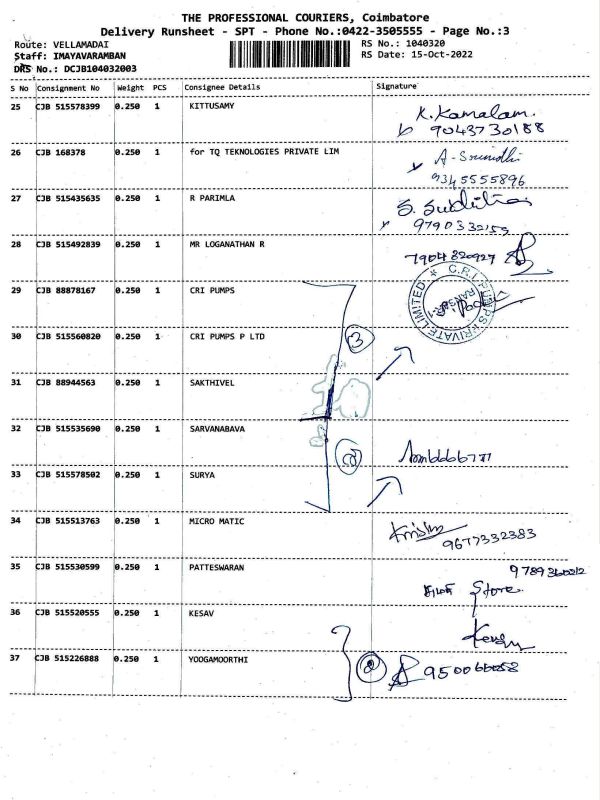 THE PROFESSIONAL COURIERS, Coimbatore
Delivery Runsheet - SPT - Phone No.:0422-3505555 - Page No.:3
Route: VELLAMADAI RS No.: 1040320
Staff: IMAYAVARAMBAN RS Date: 15-Oct-2022
DRS No.: DCJB104032003
S No Consignment No Weight PCS Consignee Details Signature
25 CJB 515578399 0.250 1 KITTUSAMY K. Kamalam.
9043730188
26 CJB 168378 0.250 1 for TQ TEKNOLOGIES PRIVATE LIM
9345555896
27 CJB 515435635 0.250 1 R PARIMLA
28 CJB 515492839 0.250 1 MR LOGANATHAN R
7904820929
29 CJB 88878167 0.250 1 CRI PUMPS
C.R.I. PUMPS PRIVATE LIMITED
30 CJB 515560820 0.250 1 CRI PUMPS P LTD
3
31 CJB 88944563 0.250 1 SAKTHIVEL
32 CJB 515535690 0.250 1 SARVANABAVA
33 CJB 515578502 0.250 1 SURYA
34 CJB 515513763 0.250 1 MICRO MATIC
9677332383
35 CJB 515530599 0.250 1 PATTESWARAN
Store
36 CJB 515520555 0.250 1 KESAV
37 CJB 515226888 0.250 1 YOOGAMOORTHI